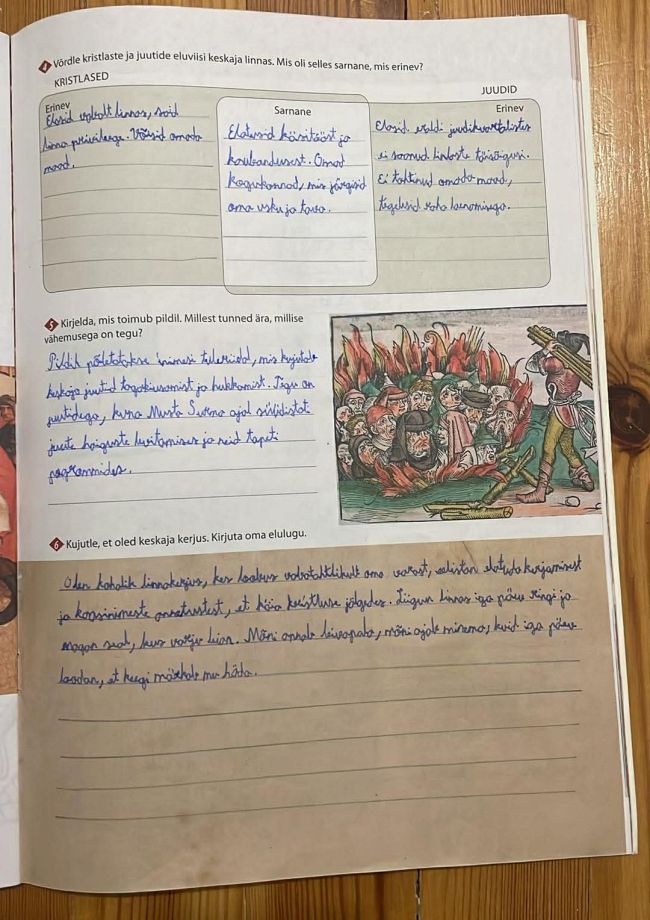 4 Võrdle kristlaste ja juutide eluviisi keskaja linnas. Mis oli selles sarnane, mis erinev?
KRISTLASED
JUUDID
Erinev
Elasid vabalt linnas, said
linna privileege. Võisid omada
maad.
Sarnane
Elatusid käsitööst ja
kaubandusest. Omad
kogukonnad, mis järgisid
oma usku ja tava.
Erinev
Elasid eraldi juudikvartalites
ei saanud linlaste täisõigusi.
Ei tohtinud omada maad,
tegelesid raha laenamisega.
5 Kirjelda, mis toimub pildil. Millest tunned ära, millise
vähemusega on tegu?
Pildil põletatakse inimesi tuleriidal, mis kujutab
keskaja juutide tagakiusamist ja hukkamist. Tegu on
juutidega, kuna Musta Surma ajal süüdistati
juute haiguste levitamises ja neid tapeti
pogrommides.
6 Kujutle, et oled keskaja kerjus. Kirjuta oma elulugu.
Olen kohalik linnakerjus, kes loobus vabatahtlikult oma varast, eelistan elatuda kerjamisest
ja kaasinimeste annetustest, et käia kristluse jälgedes. Liigun linnas iga päev ringi ja
magan seal, kus varju leian. Mõni annab leivapala, mõni ajab minema, kuid iga päev
loodan, et keegi märkab mu häda.